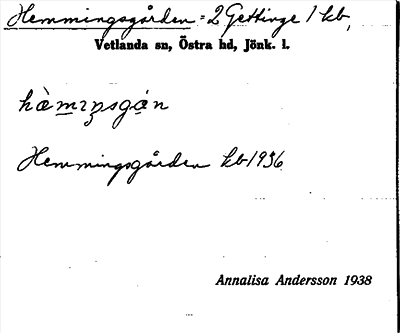 Hemmingsgården = 2 Gettinge 1 kb,
Vetlanda sn, Östra hd, Jönk. l.
hὰmıŋsgɑ́n
Hemmingsgården kb 1936
Annalisa Andersson 1938